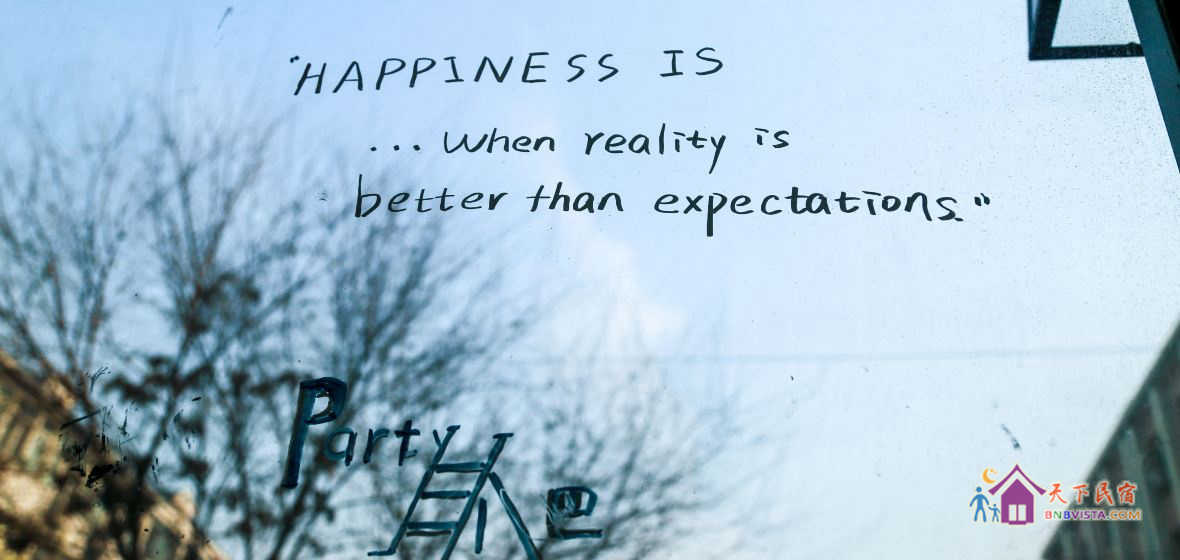 "HAPPINESS IS
...when reality is
better than expectations."
Party
吧
天下民宿
BNBVISTA.COM